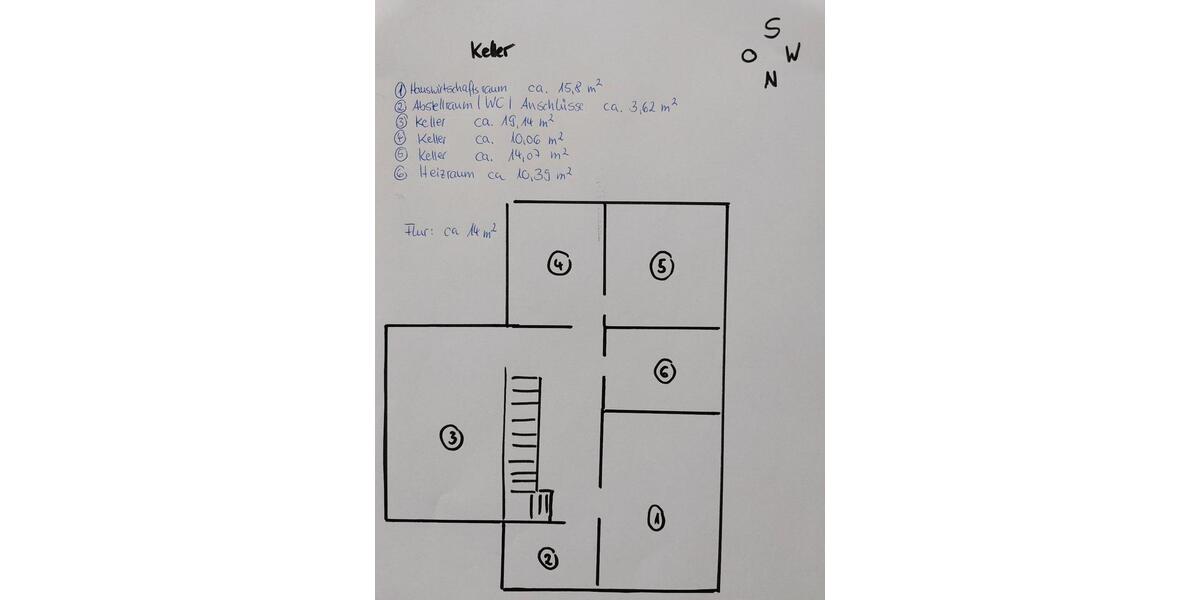 Keller
S
O W
N
① Hauswirtschaftsraum ca. 15,8 m²
② Abstellraum / WC / Anschlüsse ca. 3,62 m²
③ Keller ca. 19,14 m²
④ Keller ca. 10,06 m²
⑤ Keller ca. 14,07 m²
⑥ Heizraum ca 10,39 m²
Flur: ca 14 m²
④ ⑤
⑥
③
①
②